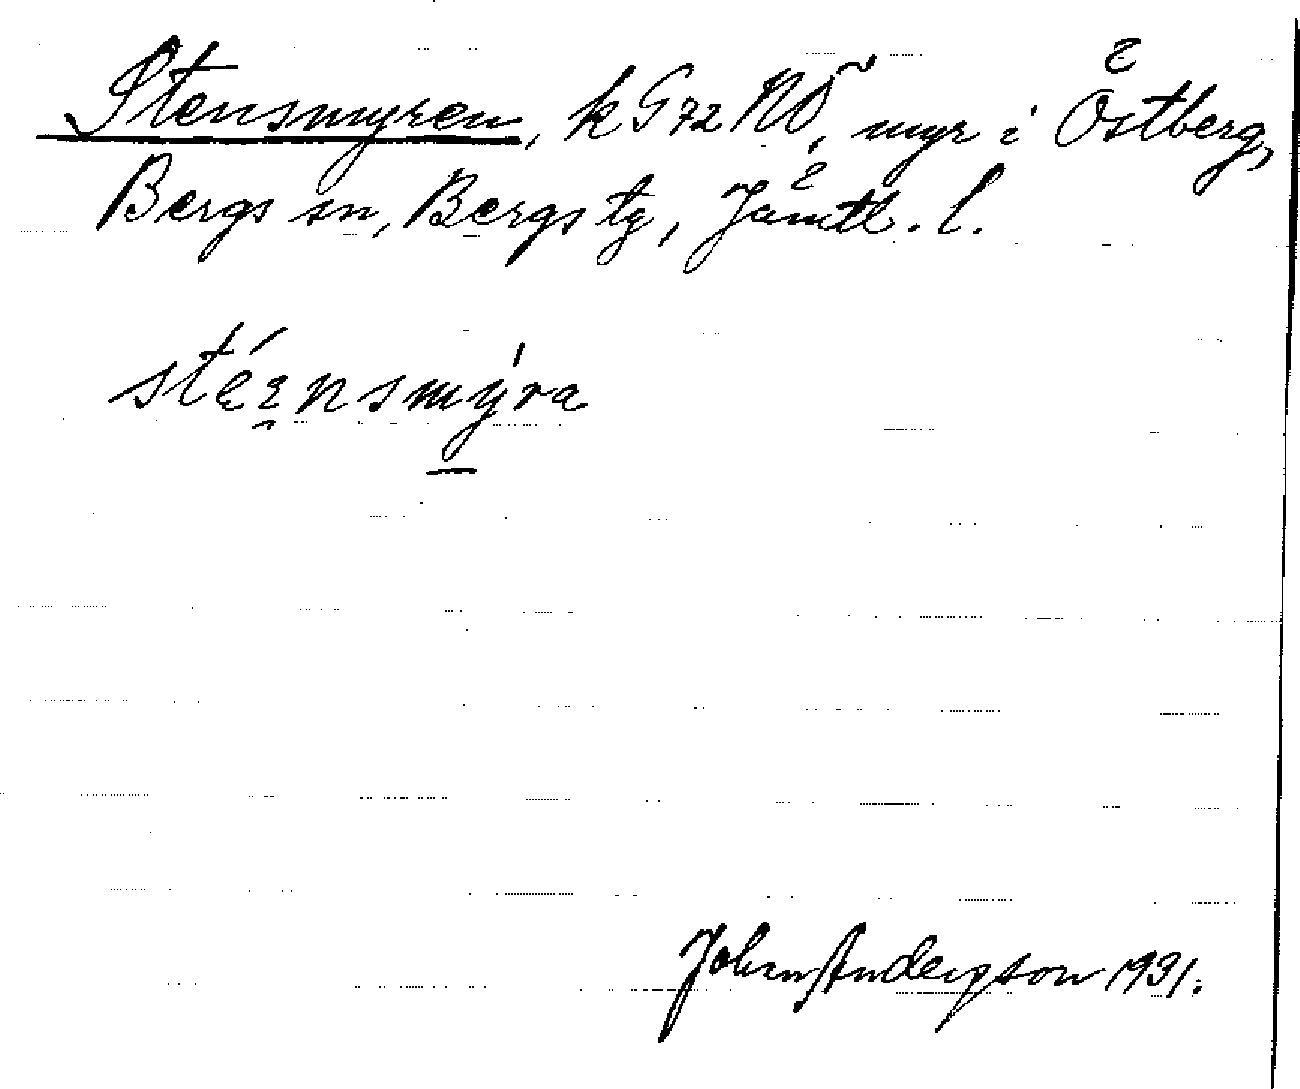 Stensmyren, k G 72 NÖ, myr i Östberg,
Bergs sn, Bergs tg, Jämtl. l.
sténsmýra
John Anderson 1931.